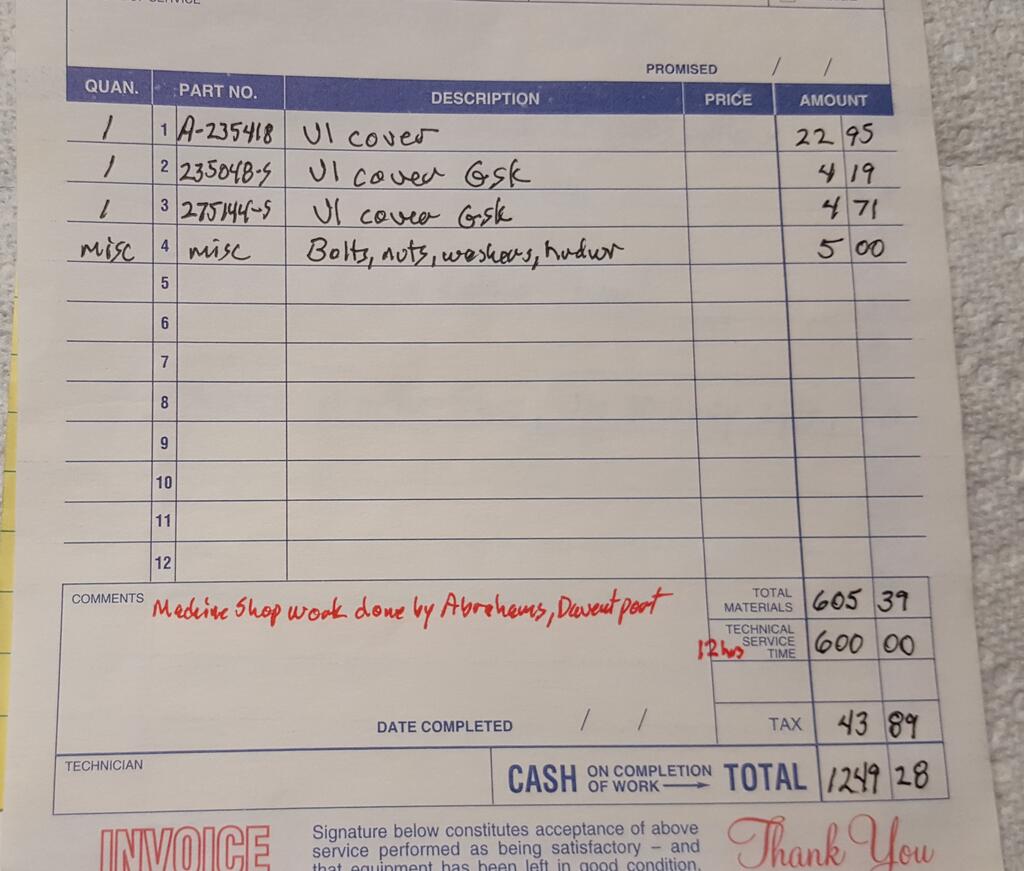 PROMISED / /
QUAN. PART NO. DESCRIPTION PRICE AMOUNT
1 1 A-235418 VI cover 22 95
1 2 235048-S VI cover Gsk 4 19
1 3 275144-S VI cover Gsk 4 71
misc 4 misc Bolts, nuts, washers, 5 00
5
6
7
8
9
10
11
12
COMMENTS Machine Shop work done by Abrahams, Davenport
TOTAL MATERIALS 605 39
12 hrs TECHNICAL SERVICE TIME 600 00
DATE COMPLETED / /
TAX 43 89
TECHNICIAN
CASH ON COMPLETION OF WORK TOTAL 1249 28
INVOICE
Signature below constitutes acceptance of above
service performed as being satisfactory – and
that equipment has been left in good condition.
Thank You